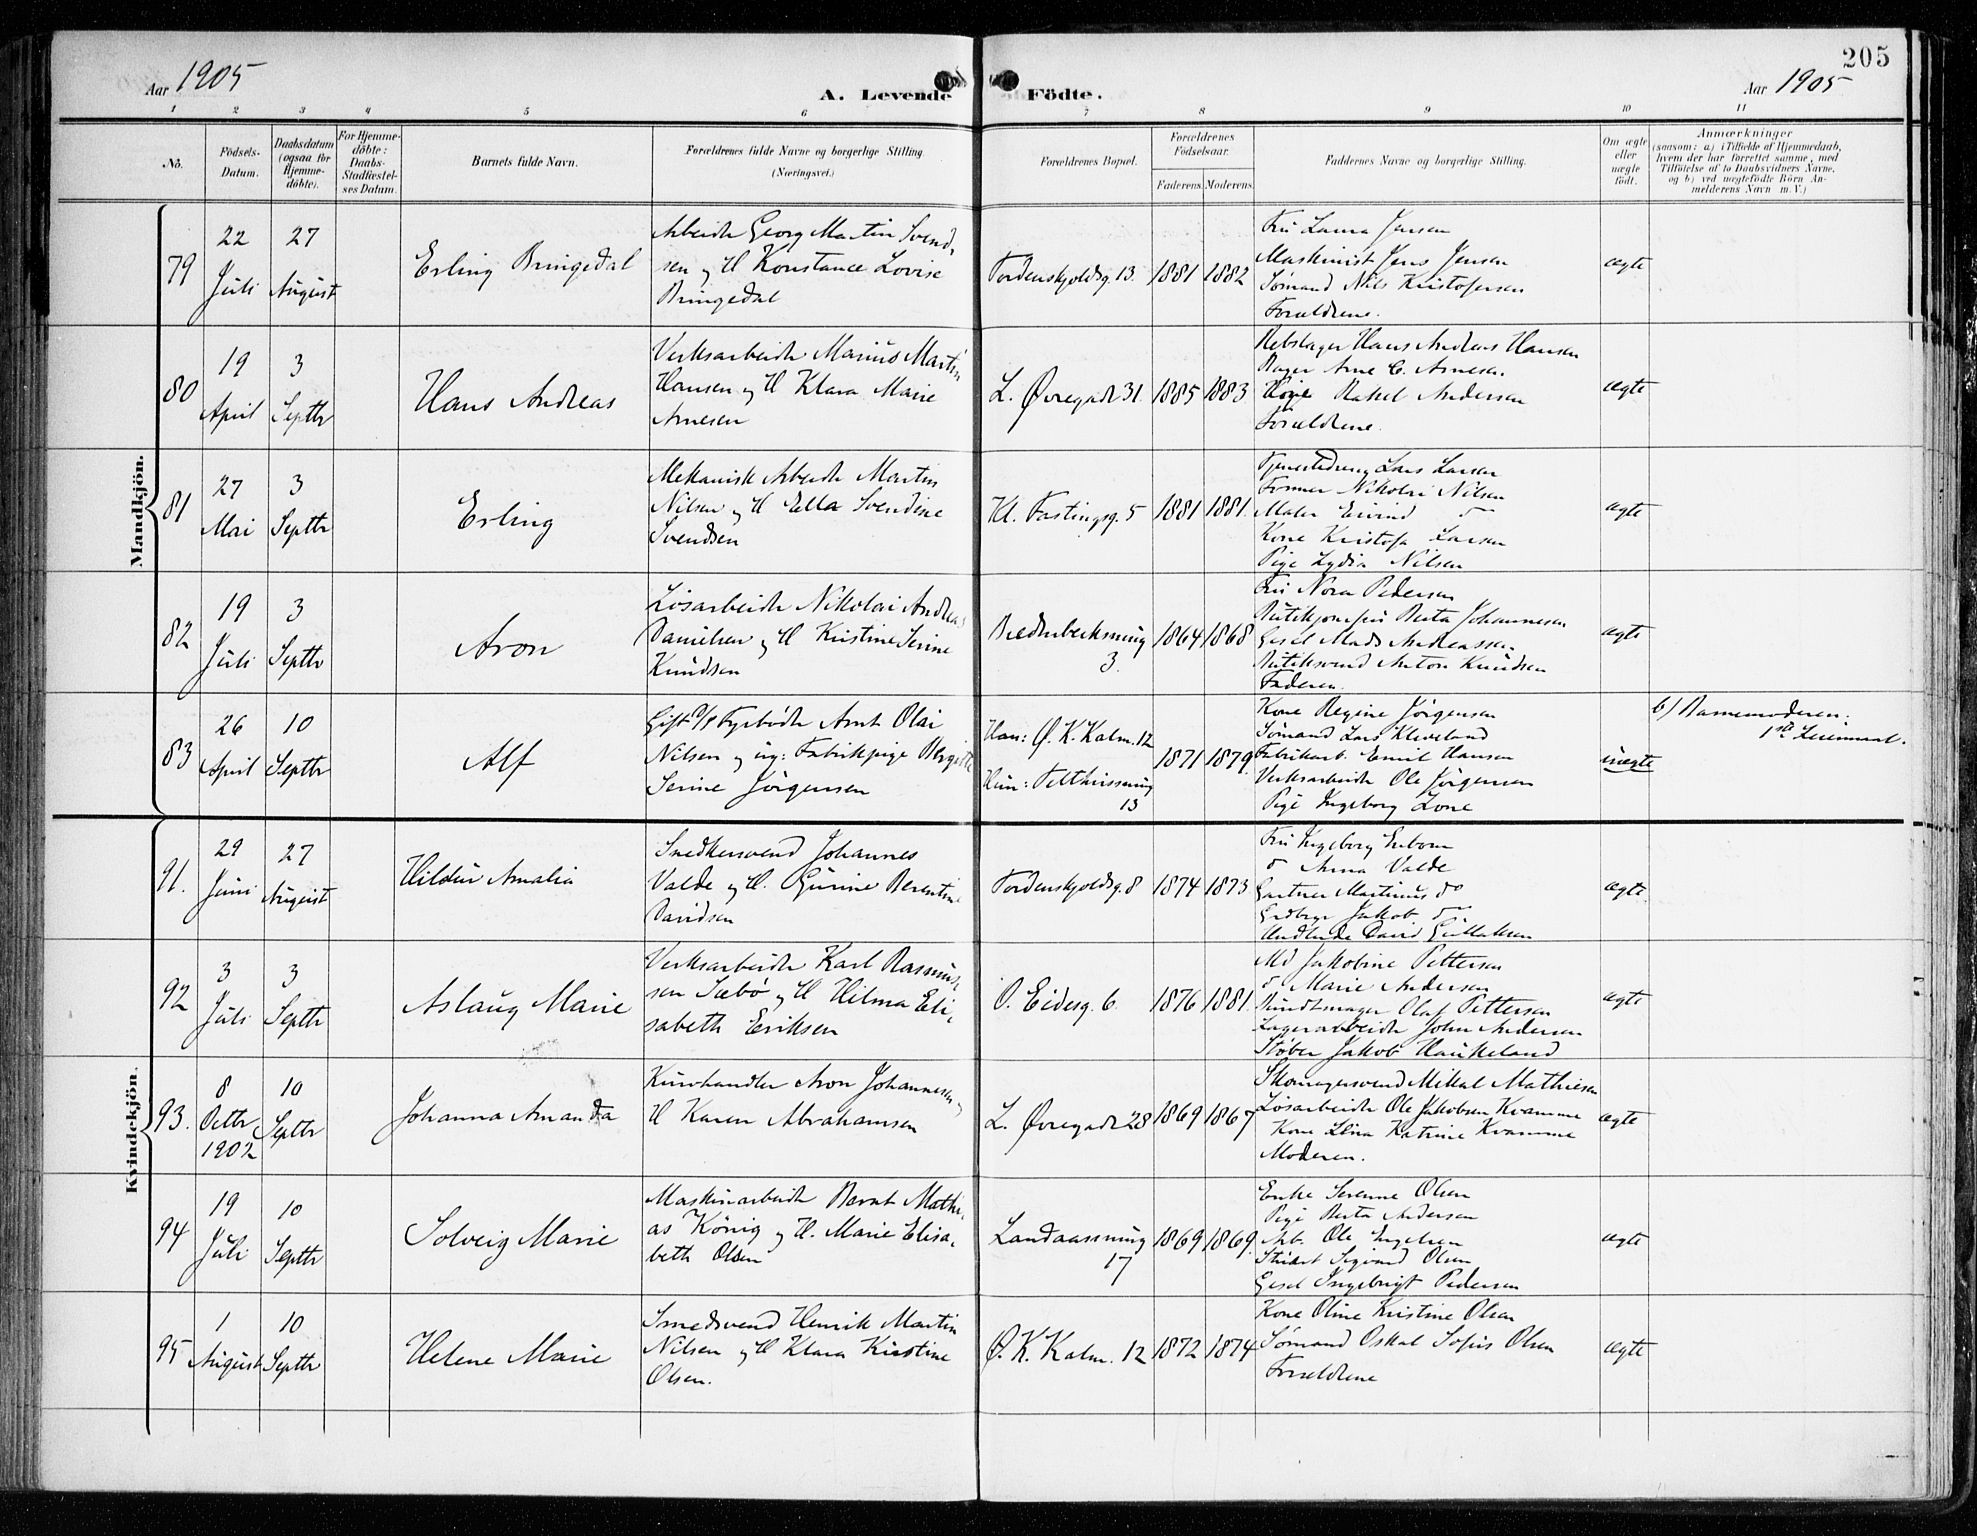 205
Aar 1905
A. Levende Födte.
Aar 1905
1 2 3 4 5 6 7 8 9 10 11
No.
Födsels-
Datum.
Daabsdatum
(ogsaa for
Hjemme-
döbte).
For Hjemme-
döbte:
Daabs-
Stadfæstel-
ses Datum.
Barnets fulde Navn.
Forældrenes fulde Navne og borgerlige Stilling.
(Næringsvei.)
Forældrenes Bopæl.
Forældrenes
Födselsaar.
Faderens. Moderens.
Faddernes Navne og borgerlige Stilling.
Om ægte
eller
uægte
födt.
Anmærkninger
(saasom: a.) i Tilfælde af Hjemmedaab,
hvem der har forrettet samme, med
Tilföielse af to Daabsvidners Navne,
og b) ved uægtefödte Börn An-
melderens Navn m. V.)
Mandkjön.
79
22
Juli
27
August
Erling Bringedal
Arbeider Georg Martin Svend-
sen og H Konstance Lovise
Bringedal
Tordenskjoldsg. 13.
1881 1882
Fru Laura Jensen
Maskinist Jens Jensen
Sømand Nils Kristofersen
Forældrene.
ægte
80
19
April
3
Septbr
Hans Andreas
Verksarbeider Marius Martin
Hansen og H Klara Marie
Arnesen
L. Øvregade 31
1885 1883
Rebslager Hans Andreas Hansen
Bager Arne C. Arnesen
Rakel Andersen
Forældrene.
ægte
81
27
Mai
3
Septbr
Erling
Mekanisk Arbeider Martin
Nilsen og H Ella Svendine
Svendsen
Kl. Fastingsg. 5
1881 1881.
Tjenestedreng Lars Larsen
Former Nikolai Nilsen
Maler Eivind do
Kone Kristofa Larsen
Pige Lydia Nilsen
ægte
82
19
Juli
3
Septbr
Aron
Løsarbeider Nikolai Andreas
Danielsen og H Kristine Serine
Knudsen
3.
1864 1868
Fru Nora Pedersen
Butikjomfru Berta Johannesen
Gesel Mads Andreassen
Butiksvend Anton Knudsen
Faderen.
ægte
83
26
April
10
Septbr
Alf
Gift Fyrbøder Arnt Olai
Nilsen og ug: Fabrikpige Bergitte
Serine Jörgensen
Han: Ø. K. Kalm. 12
Hun:
13
1871 1879.
Kone Regine Jörgensen
Sømand Lars Kleveland
Fabrikarb. Emil Hansen
Verksarbeider Ole Jörgensen
Pige Ingeborg Lone
uægte
b) Barnemoderen.
1ste Leiermaal.
Kvindekjön.
91.
29
Juni
27
August
Hildur Amalia
Snedkersvend Johannes
Valde og H. Gurine Berentine
Davidsen
Tordenskjoldsg. 8
1874 1873
Fru Ingeborg
do Anna Valde
Gartner Martinus do
Jakob do
David Gullaksen
ægte
92
3
Juli
3
Septbr
Aslaug Marie
Verksarbeider Karl Rasmus-
sen Sæbö og H Hilma Eli-
sabeth Eriksen
O. Eidesg. 6.
1876 1881.
Md Jakobine Pettersen
do Marie Andersen
Bundtmager Olaf Pettersen
Lagerarbeider John Andersen
Støber Jakob Haukeland
ægte
93.
8
Octbr
1902
10
Septbr
Johanna Amanda
Kurvhandler Aron Johannesen og
H Karen Abrahamsen
L. Øvregade 28
1869 1867
Skomagersvend Mikal Mathiesen
Løsarbeider Ole Jakobsen Kvamme
Kone Elina Katrine Kvamme
Moderen.
ægte
94
19
Juli
10
Septbr
Solveig Marie
Maskinarbeider Bernt Mathi-
as König og H. Marie Elisa-
beth Olsen
Landaassmug
17
1869 1869.
Enke Serenne Olsen
Pige Berta Andersen
Arb. Ole Ingebr.
Sigvard Olsen
Gesel Ingebrigt Pedersen
ægte
95
1
August
10
Septbr
Helene Marie
Smedsvend Henrik Martin
Nilsen og H Klara Kirstine
Olsen.
Ø. K. Kalm. 12
1872 1874
Kone Oline Kristine Olsen
Sømand Oskal Sofus Olsen
Forældrene
ægte